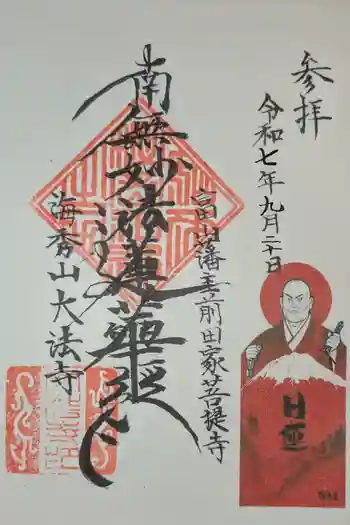 参拝
令和七年九月二十日
富山藩主前田家菩提寺
南無妙法蓮華経
海秀山大法寺